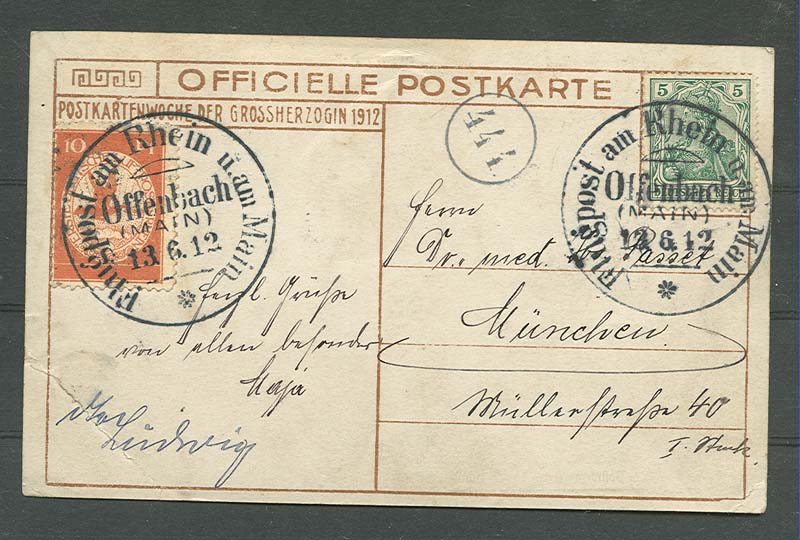 OFFICIELLE POSTKARTE
POSTKARTENWOCHE DER GROSSHERZOGIN 1912
10
Flugpost am Rhein u. am Main
Offenbach
(MAIN)
13.6.12
444
5 5
Flugpost am Rhein u. am Main
Offenbach
(MAIN)
13.6.12
Herrn
Dr. med. Passet
München.
Müllerstraße 40
I. Stock.
herzl. Grüße
von allen besonders
Maja
Ludwig